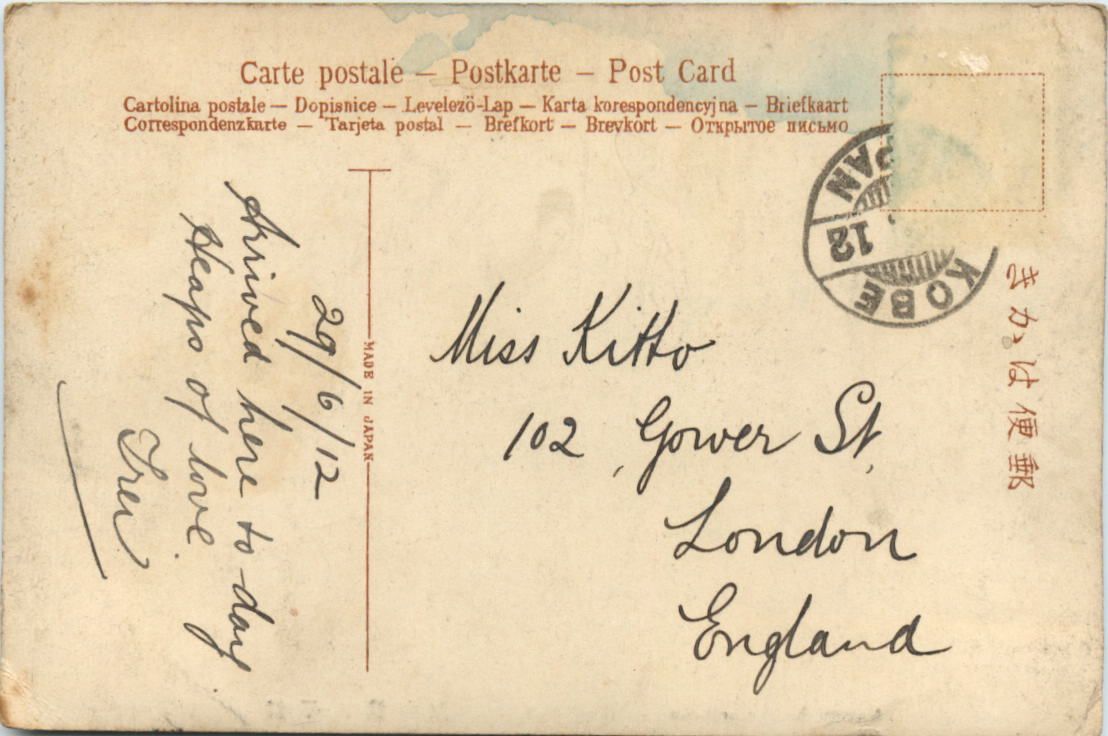 Carte postale — Postkarte — Post Card
Cartolina postale — Dopisnice — Levelező-Lap — Karta korespondencyjna — Briefkaart
Correspondenzkarte — Tarjeta postal — Brefkort — Brevkort — Открытое письмо
29/6/12
Arrived here to-day
Heaps of love
MADE IN JAPAN
Miss Kitto
102, Gower St,
London
England
PAN
12
KOBE
きかは便郵